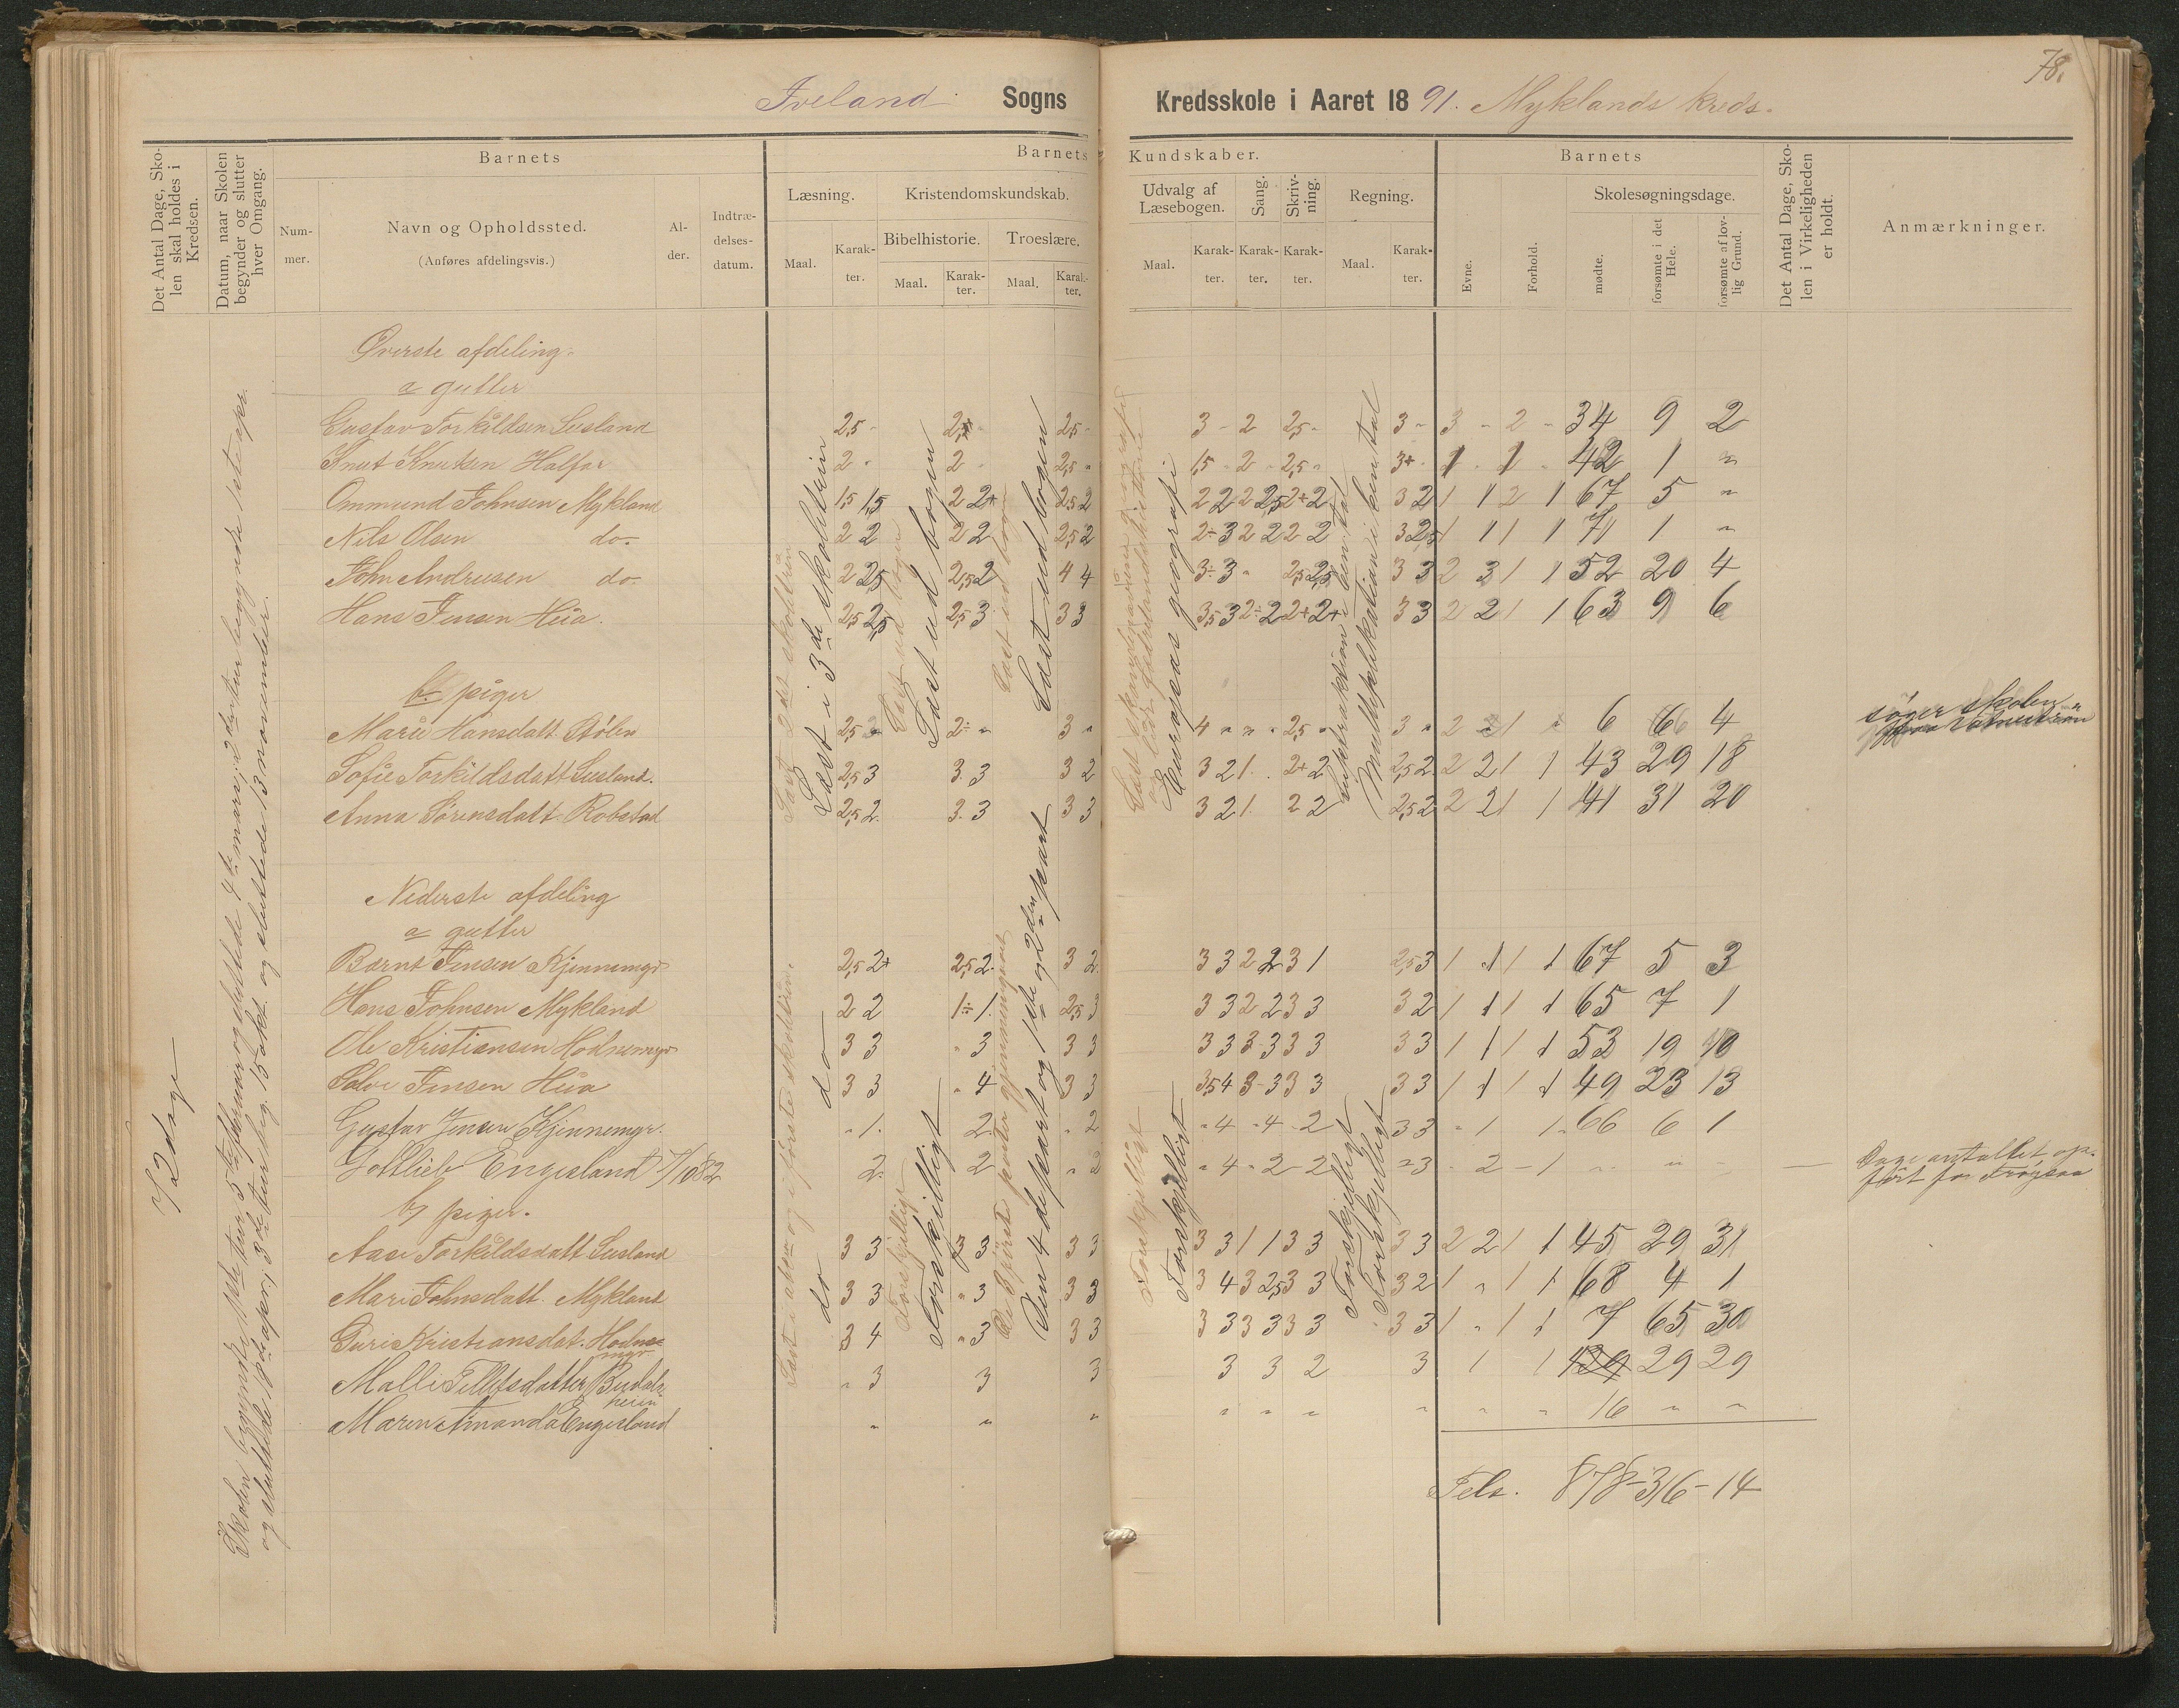 78.
Iveland Sogns Kredsskole i Aaret 1891. Myklands kreds.
Det Antal Dage, Skolen skal holdes i Kredsen.
Datum, naar Skolen begynder og slutter hver Omgang.
Barnets
Nummer.
Navn og Opholdssted.
(Anføres afdelingsvis.)
Alder.
Indtrædelsesdatum.
Barnets Kundskaber.
Læsning.
Maal. Karakter.
Kristendomskundskab.
Bibelhistorie. Troeslære.
Maal. Karakter. Maal. Karakter.
Udvalg af Læsebogen. Sang. Skrivning. Regning.
Maal. Karakter. Karakter. Karakter. Maal. Karakter.
Barnets
Evne. Forhold.
Skolesøgningsdage.
mødte. forsømte i det Hele. forsømte af lovlig Grund.
Det Antal Dage, Skolen i Virkeligheden er holdt.
Anmærkninger.
72 dage
Læst i 3de skoletrin
Læst ud bogen
Læst ud bogen
Europas geografi
Øverste afdeling.
a gutter
Gustav Torkildsen Susland 2,5 2,5 3 - 2 2,5 3 - 3 - 2 - 34 9 2
Knut Knutsen Halfar 2 2 2,5 1,5 - 2 - 2,5 3+ 42 1 "
Ommund Johnsen Mykland 1,5 1,5 2 2+ 2,5 2 2 2 2 2,5 2+ 2 3 2 1 1 2 1 67 5 "
Nils Olsen do. 2 2 2 2 2,5 2 2÷ 3 2 2 2 2 3 2,5 1 1 1 1 71 1 "
John Andreesen do. 2 2,5 2,5 2 4 4 3÷ 3 2,5 2,5 3 3 2 3 1 1 52 20 4
Hans Jensen Hiia. 2,5 2,5 2,5 3 3 3 3,5 3 2÷ 2 2+ 2+ 3 3 2 2 1 1 63 9 6
b. piger
Marie Hansdatt. Stölen 2,5 2÷ " 3 " 4 " " " 2,5 " 3 " 2 1 6 66 4 søger skolen
Sofie Torkildsdatt Susland. 2,5 3 3. 3 3 2 3 2 1. 2+ 2 2,5 2 2 2 1 1 43 29 18
Anna Sörensdatt. Robstad 2,5 2. 3. 3 3 3 3 2 1. 2 2 2,5 2 2 2 1 1 41 31 20
Nederste afdeling
a gutter
Bernt Jensen Kjennemyr 2,5 2+ 2,5 2. 3 2. 3 3 2 2 3 1 2,5 3 1 1 1 1 67 5 3
Hans Johnsen Mykland 2 2 1÷ 1. 2,5 3 3 3 2 2 3 3 3 2 1 1 1 1 65 7 1
Ole Kristiansen Hodnemyr 3 3 " 3 3 3 3 3 3 3 3 3 3 3 1 1 1 1 53 19 10
Salve Jensen Hiia 3 3 " 4 3 3 3,5 4 3 - 3 3 3 3 3 1 1 1 1 49 23 13
Gustav Jensen Kjennemyr. " 1. 2. " 2 " 4 " 4 " 2 3 3 " 1 1 66 6 1
Gottlieb Engesland 7/10 82 2. 2 " 2 " 4 - 2 - 2 " 3 - 2 - 1 " " - Dage antallet opfört for Frøysaa
b) piger.
Aase Torkildsdatt Susland 3 3 3 3 3 3 3 1 1 3 3 3 3 2 2 1 1 45 29 31
Mari Johnsdatt. Mykland 3 3 " 3 3 3 3 4 3 2,5 3 3 3 2 1 " 1 1 68 4 1
Guri Kristiansdat. Hodnemyr 3 4 " 3 3 3 3 3 3 3 3 3 3 3 1 " 1 1 7 65 30
Malli Tellefsdatter " 3 3 3 3 3 2 3 1 1 29 29
Maren Amanda Engesland " " " " " " " " " 16 " "
do
do
Forskjelligt
Den 4de part og 1ste og 2den part
Forskjelligt
Forskjelligt
Tels. 878 - 316 - 14